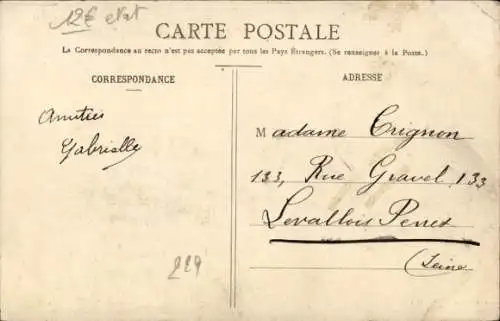 12€ etat
CARTE POSTALE
La Correspondance au recto n'est pas acceptée par tous les Pays Étrangers. (Se renseigner à la Poste.)
CORRESPONDANCE
ADRESSE
Amitiés
Gabrielle
Madame Crignon
133, Rue Gravel 133
Levallois Perret
(Seine
229